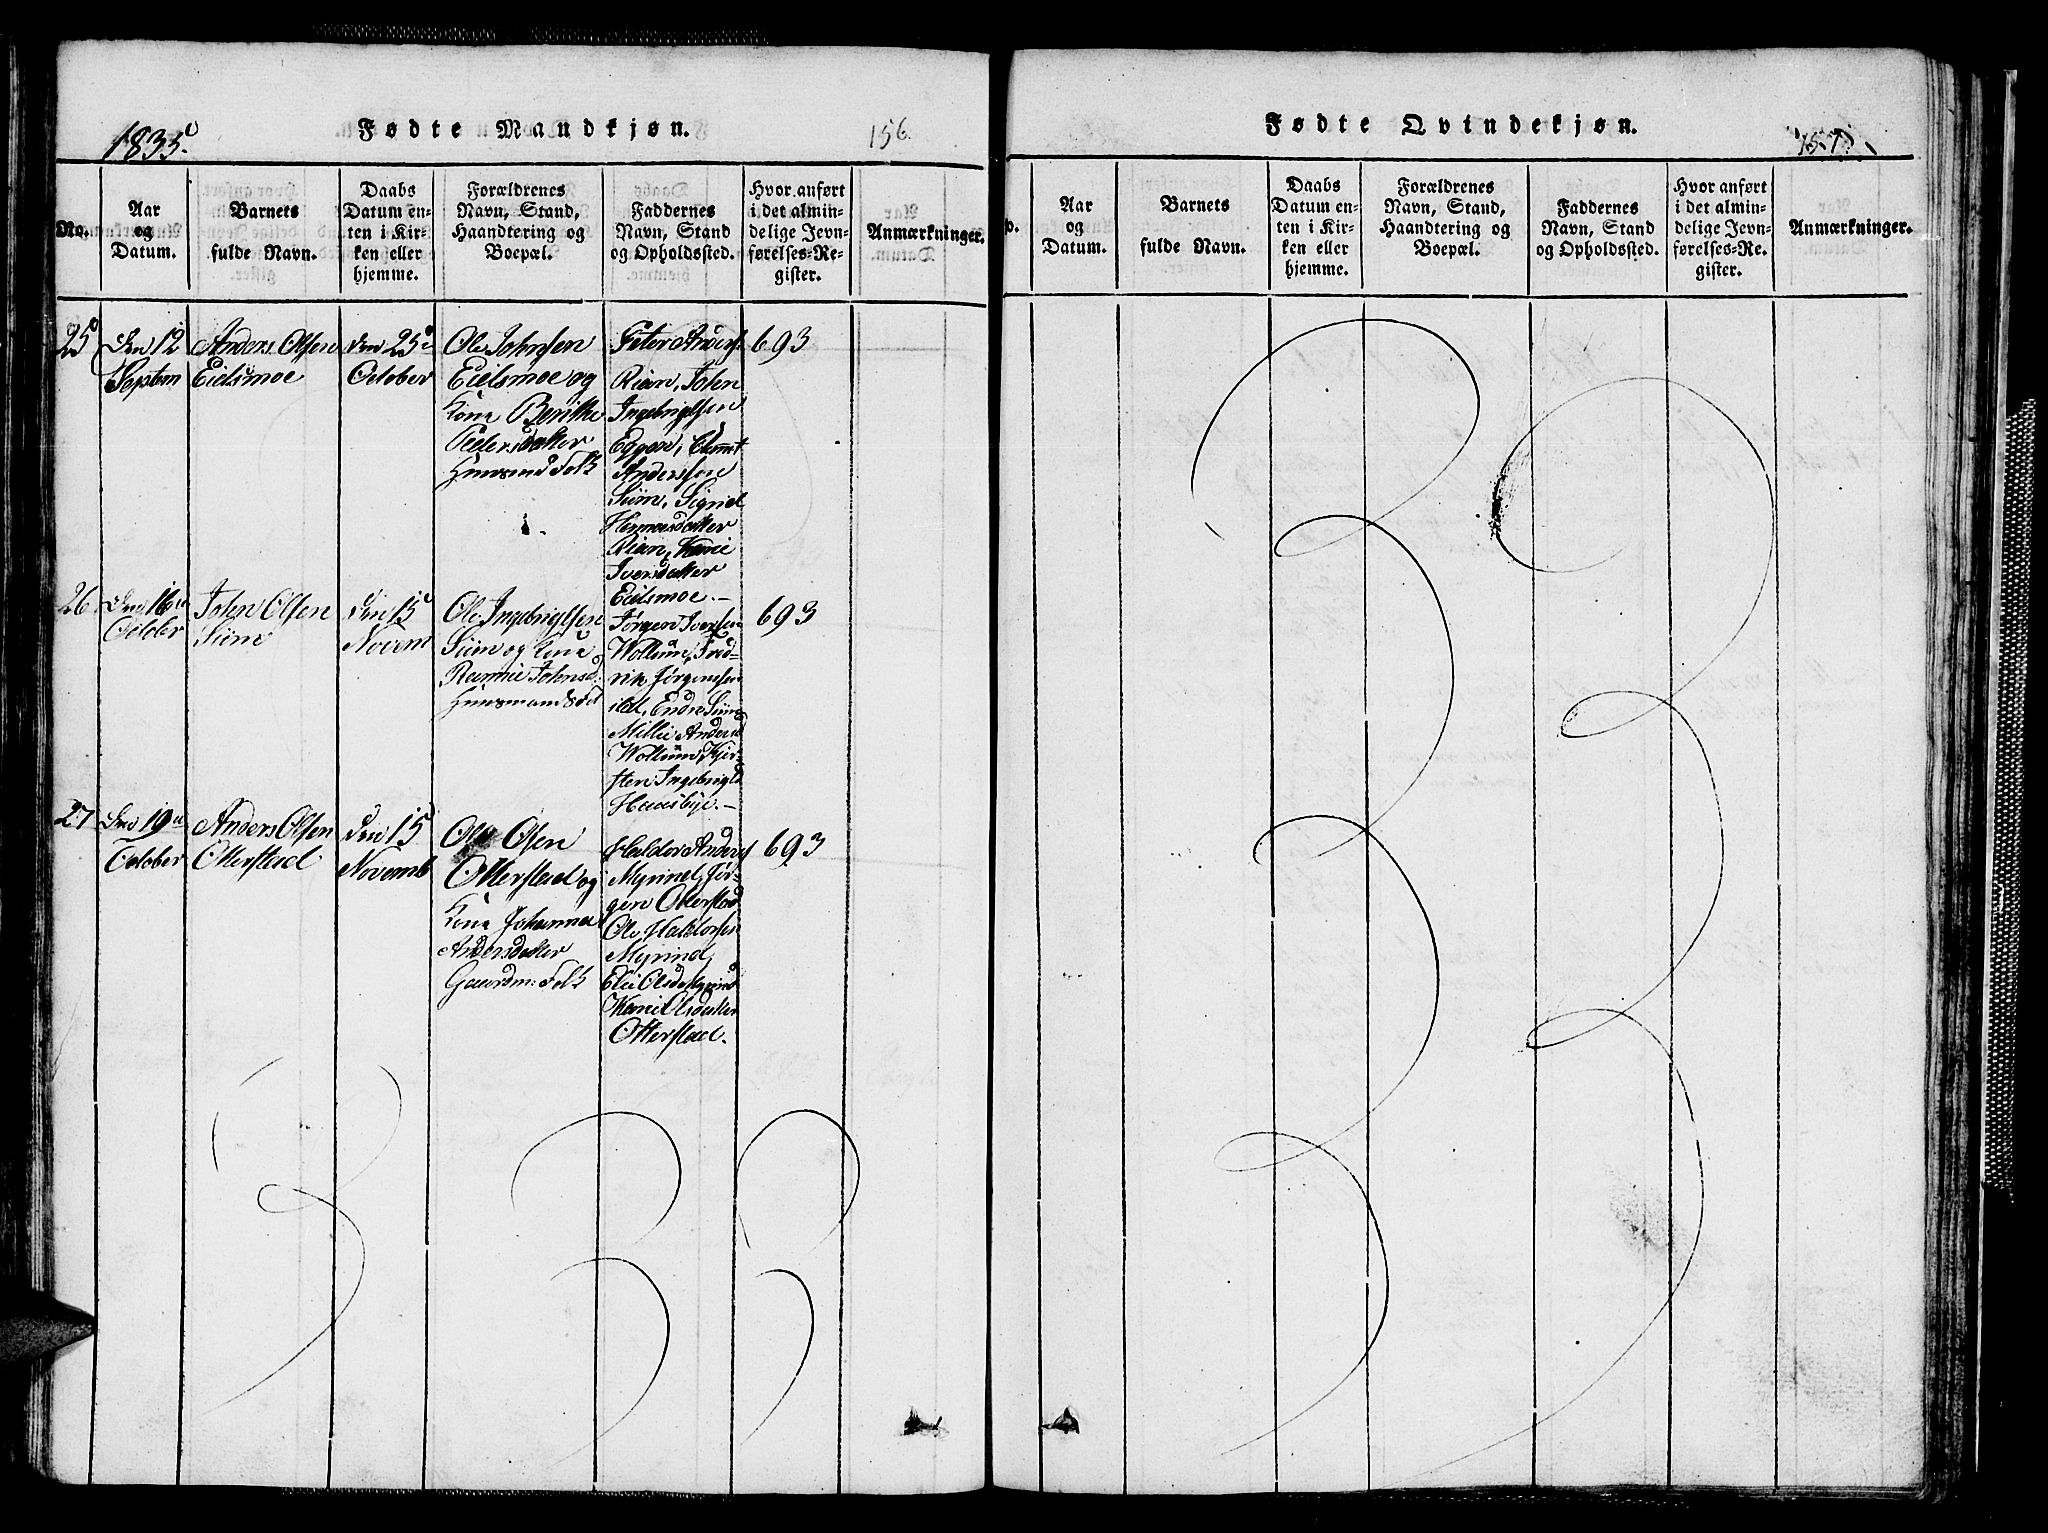 1835.
Fødte Mandkjøn.
156.
No.
Aar
og
Datum.
Barnets
fulde Navn.
Daabs
Datum en-
ten i Kir-
ken eller
hjemme.
Forældrenes
Navn, Stand,
Haandtering og
Boepæl.
Faddernes
Navn, Stand
og Opholdssted.
Hvor anført
i det almin-
delige Jevn-
førelses-Re-
gister.
Anmærkninger.
25
Den 12
Septem
Anders Olsen
Eielsmoe
den 25
October
Ole Johnsen
Eielsmoe og
Kone Berithe
Pedersdatter
Huusmd Folk
Peter Anders
Rian, John
Ingebrigtsen
Eggen,
Anderssen
Siim, Signel
datter
Rian, Karie
Iversdatter
Eielsmoe.
693
26
Den 16
October
John Olsen
Siim
den 15
Novem
Ole Ingebrigtsen
Siim og Kone
Rannie Johnsd.
Huusmands
Jørgen Iversen
Wollum, Fred-
rik Jørgenssen
ibd, Endre Siim
Millie Andersd
Wollum, Kjer-
sten Ingebrigtd
Haasbye.
693
27
Den 19
October
Anders Olsen
Otterstad
den 15
Novemb
Ole Olsen
Otterstad og
Kone Johanna
Andersdatter
Gaardm: Folk
Haldor Anders
Myrind, Jør-
gen Otterstad
Ole Haldorsen
Myrind,
Elie Olsd Myrind
Karie Olsdatter
Otterstad.
693
Fødte Qvindekjøn.
157.
Aar
og
Datum.
Barnets
fulde Navn.
Daabs
Datum en-
ten i Kir-
ken eller
hjemme.
Forældrenes
Navn, Stand,
Haandtering og
Boepæl.
Faddernes
Navn, Stand
og Opholdssted.
Hvor anført
i det almin-
delige Jevn-
førelses-Re-
gister.
Anmærkninger.